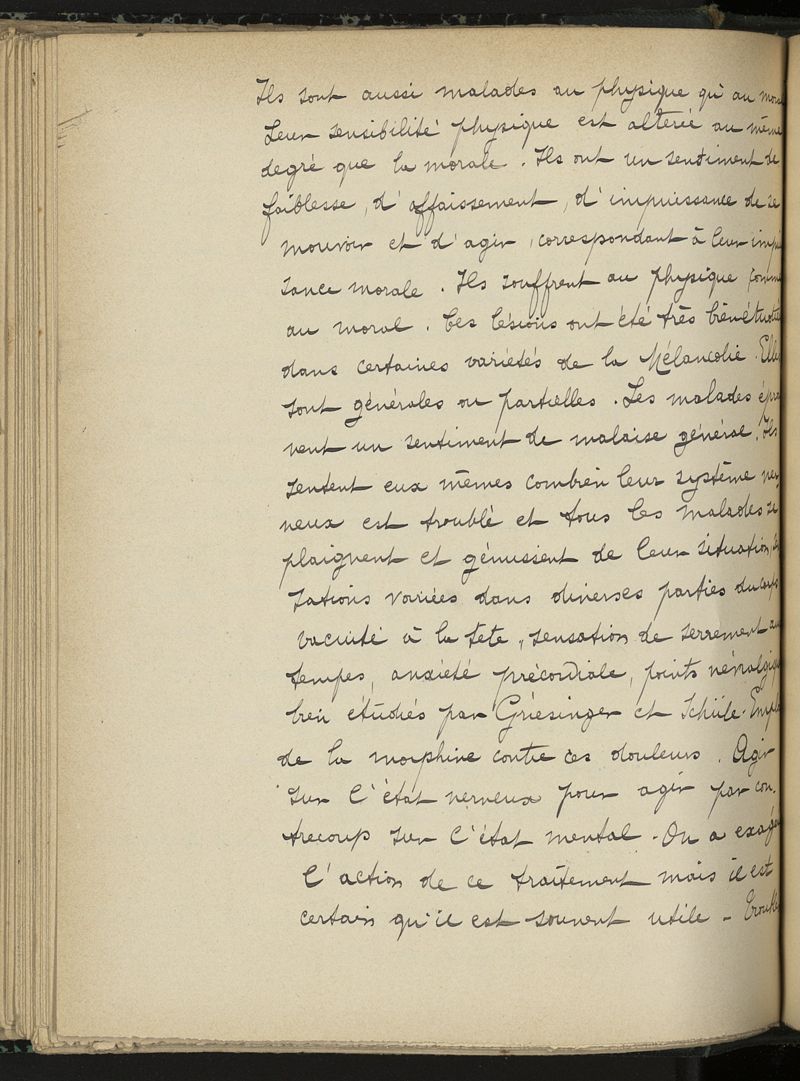 Ils sont aussi malades au physique qu'au mora
Leur sensibilité physique est altérée au même
degré que la morale. Ils ont un sentiment de
faiblesse, d'affaissement, d'impuissance de se
mouvoir et d'agir, correspondant à leur impui
sance morale. Ils souffrent au physique comm
au moral. Ces lésions ont été très bien étudié
dans certaines variétés de la Mélancolie. Elles
sont générales ou partielles. Les malades épro
vent un sentiment de malaise général. Ils
sentent eux mêmes combien leur système ner
veux est troublé et tous les malades se
plaignent et gémissent de leur situation,
sations variées dans diverses parties du corps
vacuité à la tête, sensation de serrement au
tempes, anxiété précordiale, points névralgiqu
bien étudiés par Griesinger et Schüle. Empl
de la morphine contre ces douleurs. Agir
sur l'état nerveux pour agir par con.
trecoup sur l'état mental. On a exagé
l'action de ce traitement mais il est
certain qu'il est souvent utile - Trouble